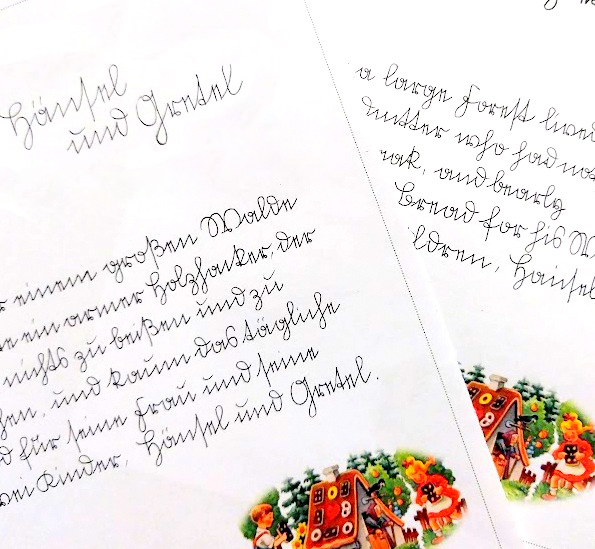 Hänsel
und Gretel
einem großen Walde
ein armer Holzhacker, der
nichts zu beißen und zu
hen, und kaum das tägliche
d für seine Frau und seine
wei Kinder, Hänsel und Gretel.
a large forest lived
cutter who had not
and bearly
bread for his W
ldren, Hansel